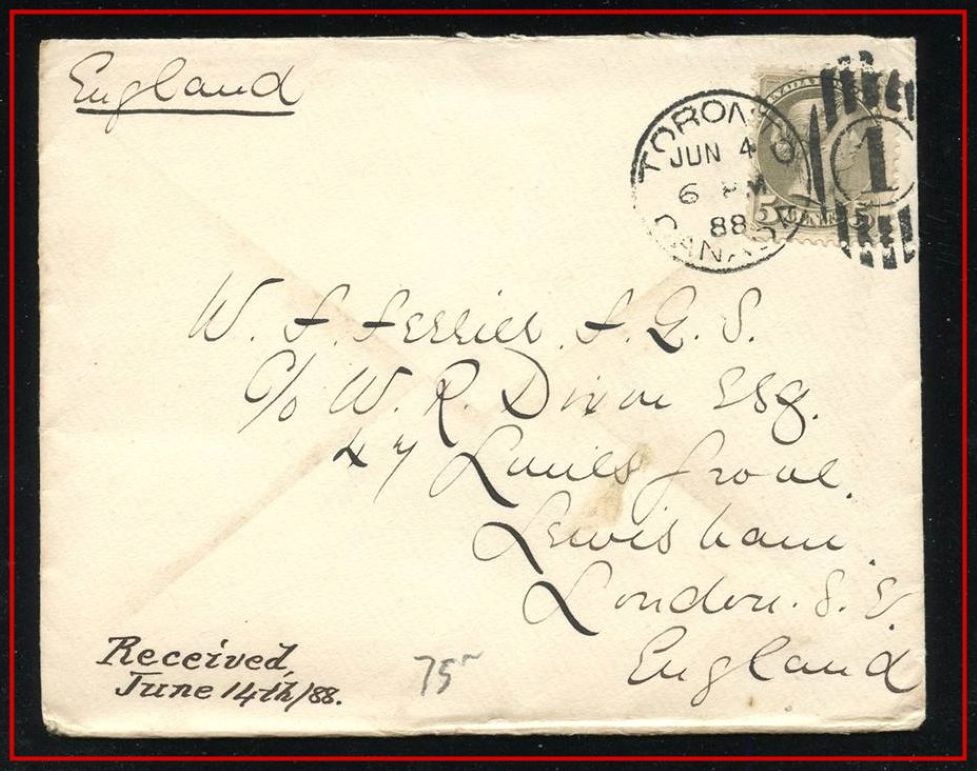 England
TORONTO
JUN 4
6 PM
88
CANADA
1
5
W. F. Ferrier. F. G. S.
C/o W. R. Dixon Esq.
47 Limes Grove.
Lewisham.
London. S. E.
England
Received,
June 14th/88.
75